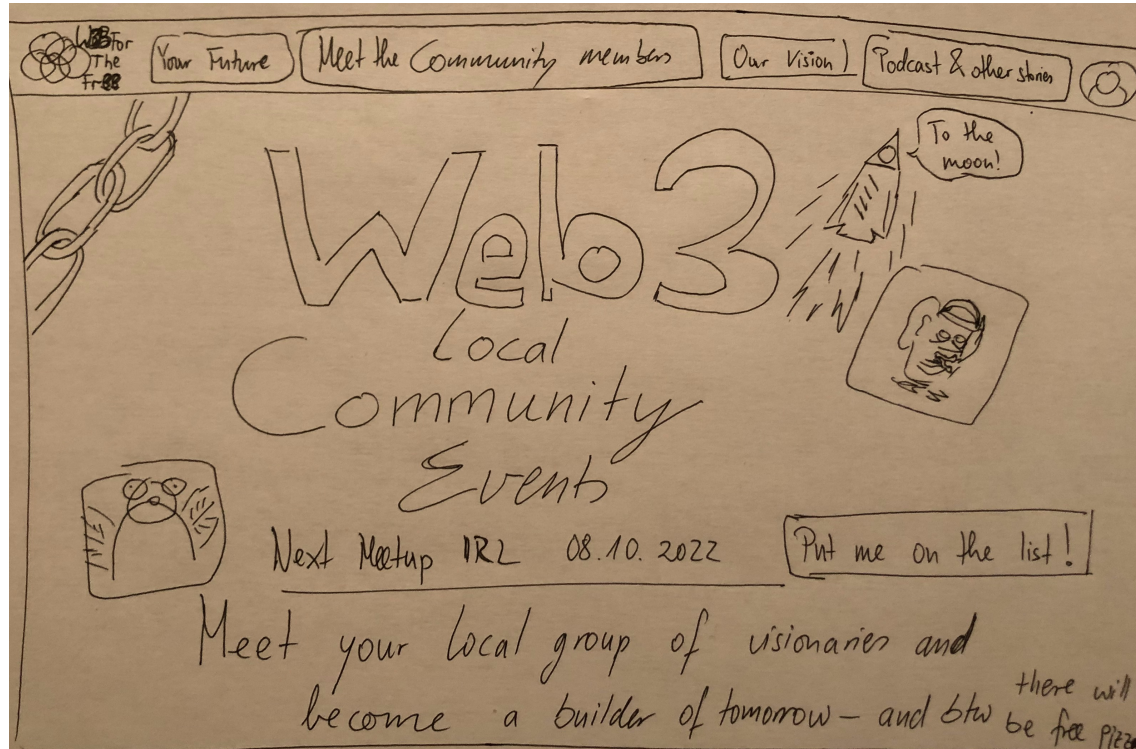 WEB For
The
Free
Your Future
Meet the Community members
Our Vision
Podcast & other stories
Web3
To the
moon!
Local
Community
Events
Next Meetup IRL 08.10.2022
Put me on the list!
Meet your local group of visionaries and
become a builder of tomorrow – and btw
there will
be free pizza